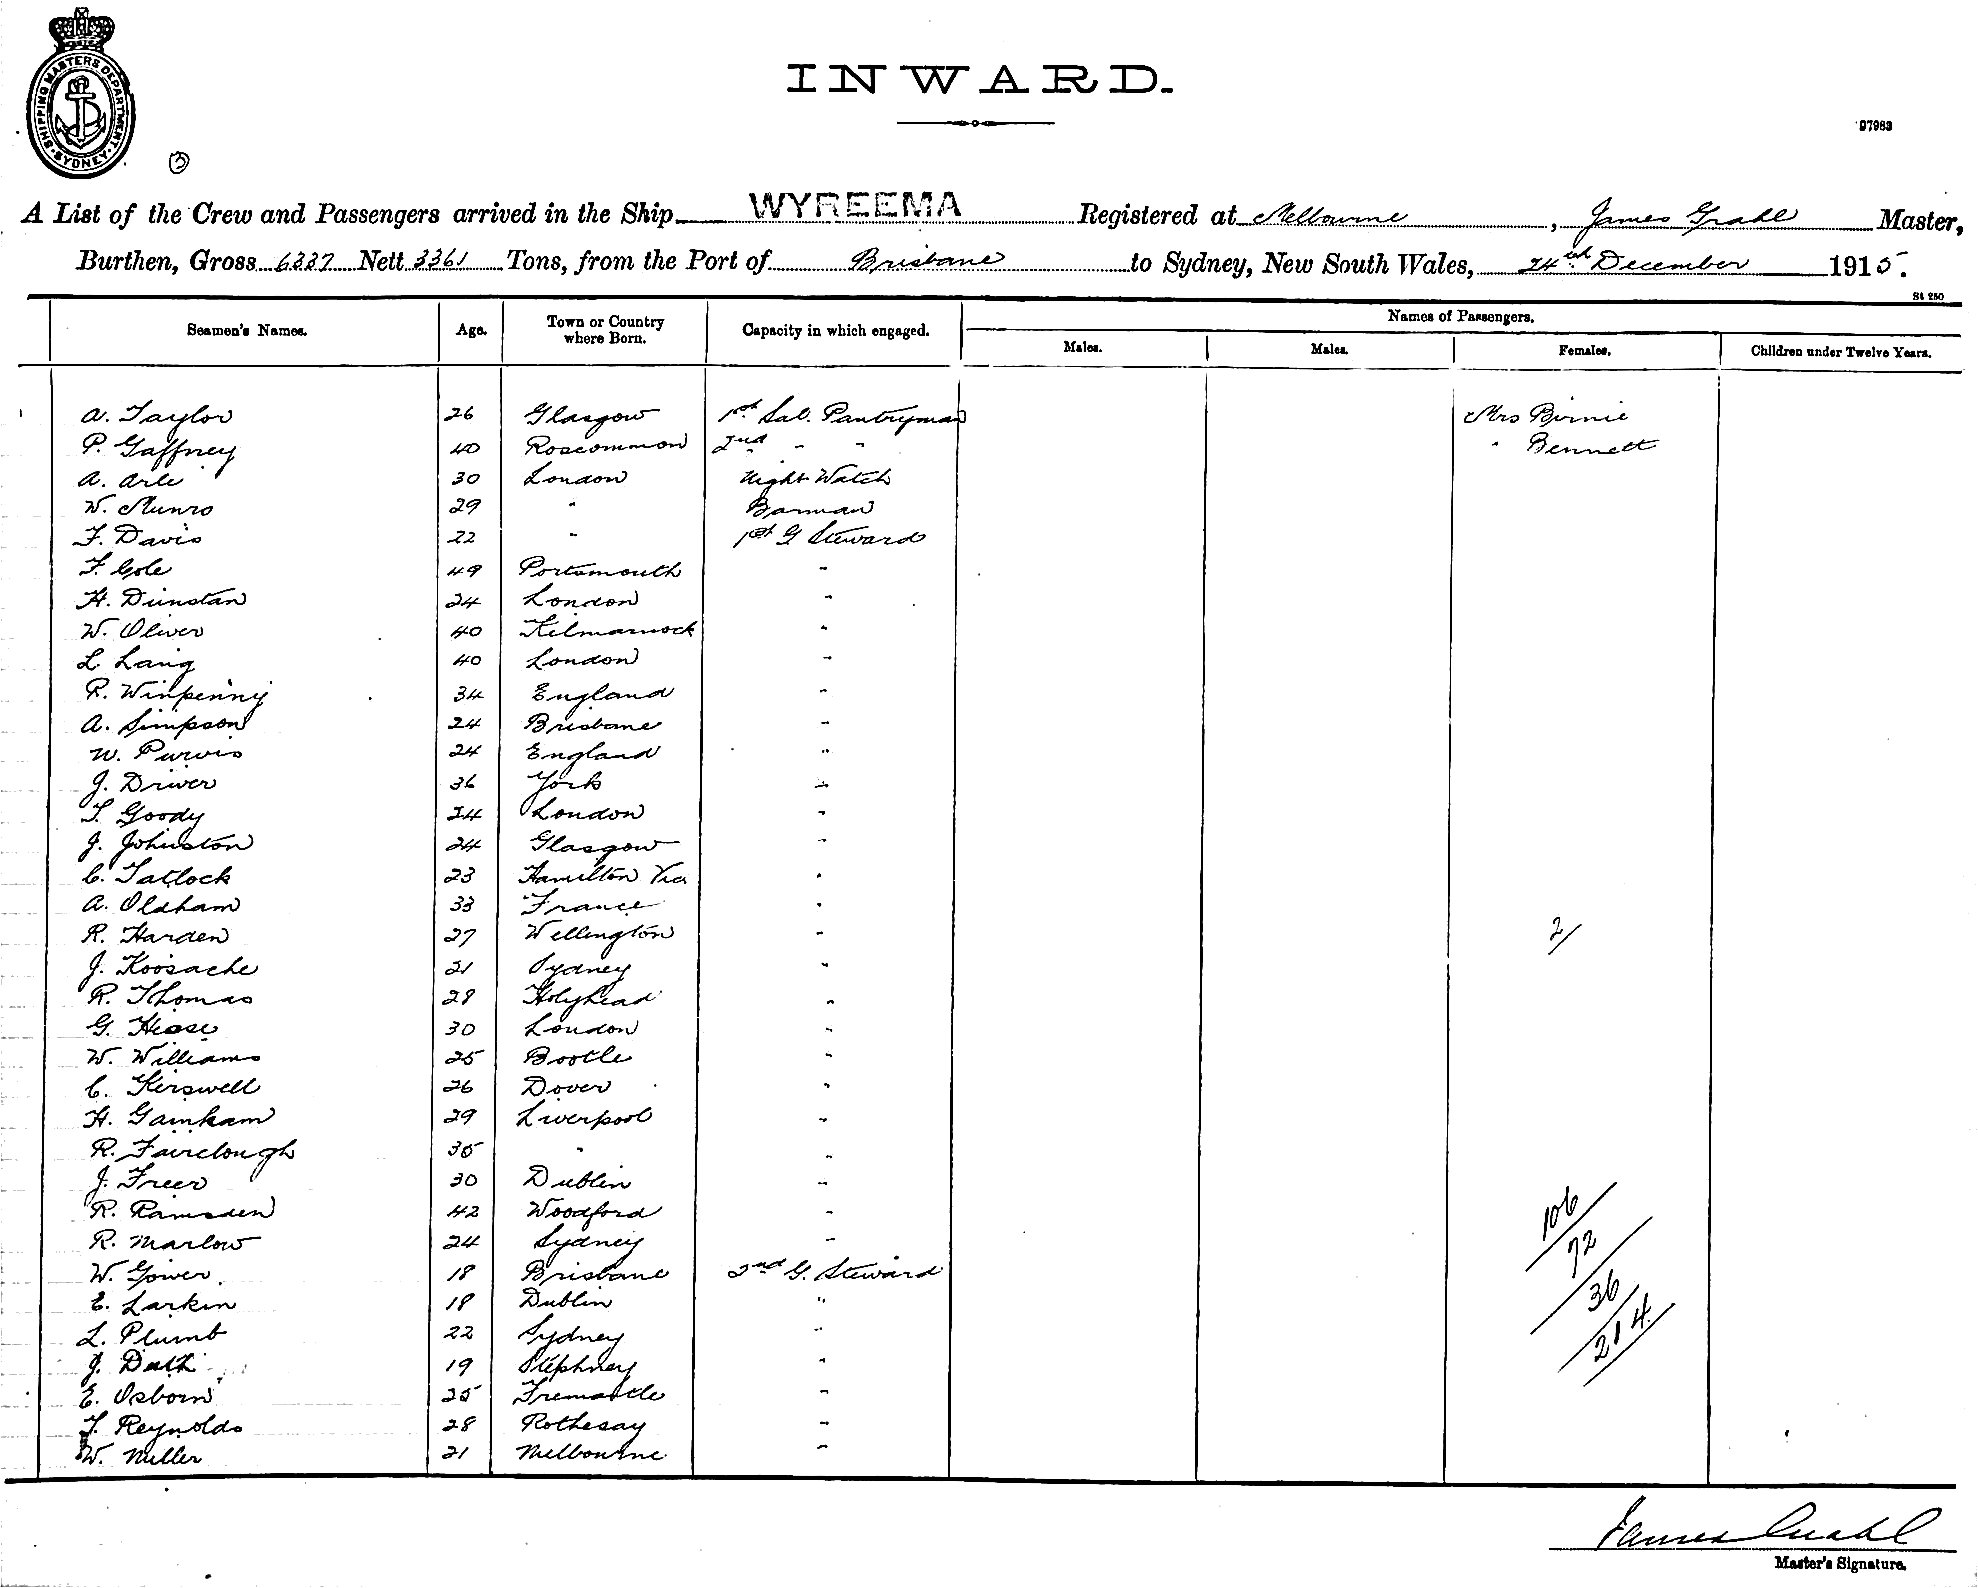 SHIPPING MASTERS DEPARTMENT. SYDNEY.
3
INWARD.
97983
A List of the Crew and Passengers arrived in the Ship WYREEMA Registered at Melbourne, James Grahl Master,
Burthen, Gross 6337 Nett 3361 Tons, from the Port of Brisbane to Sydney, New South Wales, 24th December 1915.
St 250
Seamen's Names. Age. Town or Country where Born. Capacity in which engaged. Names of Passengers.
Males. Males. Females. Children under Twelve Years.
A. Taylor 26 Glasgow 1st Sal. Pantryman Mrs Birnie
P. Gaffney 40 Roscommon 2nd " " " Bennett
A. Arle 30 London Night Watch
W. Munro 29 " Barman
F. Davis 22 " 1st G Steward
F. Cole 49 Portsmouth "
H. Dunstan 24 London "
W. Oliver 40 Kilmarnock "
L. Laing 40 London "
R. Winpenny 34 England "
A. Simpson 24 Brisbane "
W. Purvis 24 England "
J. Driver 36 York "
T. Goody 24 London "
J. Johnston 24 Glasgow "
C. Tatlock 23 Hamilton Vic "
A. Oldham 33 France "
R. Harden 27 Wellington " 2/
J. 21 Sydney "
R. Thomas 28 Holyhead "
G. 30 London "
W. Williams 25 Bootle "
C. Kerswell 26 Dover "
H. Gainham 29 Liverpool "
R. Fairclough 35 " "
J. Freer 30 Dublin "
R. Ramsden 42 Woodford " 106
R. Marlow 24 Sydney " 72
W. Gower 18 Brisbane 2nd G. Steward 36
E. Larkin 18 Dublin " 214
L. Plumb 22 Sydney "
J. 19 Stephney "
E. Osborn 25 Fremantle "
T. Reynolds 28 Rothesay "
W. Miller 21 Melbourne "
James Grahl
Master's Signature.